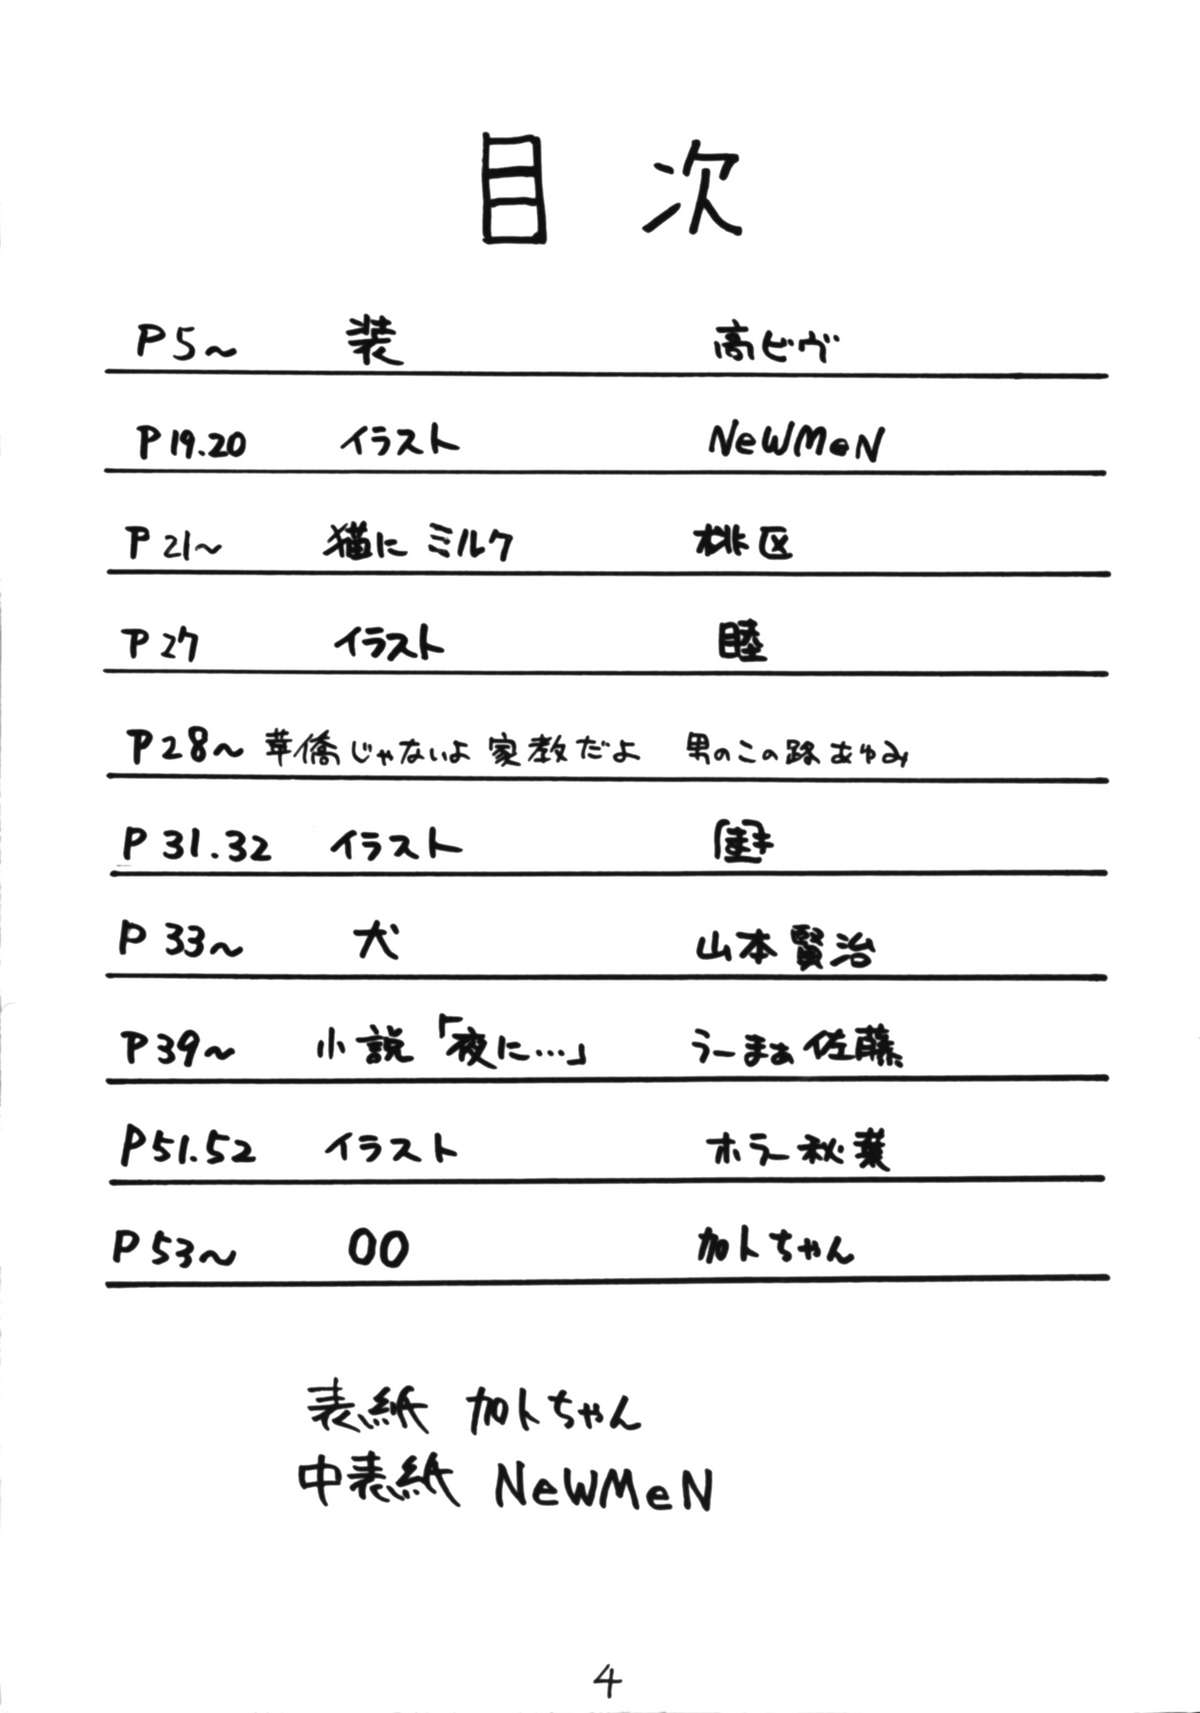 目次
P5〜 装 高ビヴ
P19.20 イラスト NeWMeN
P21〜 猫にミルク 桃区
P27 イラスト 睦
P28〜 華僑じゃないよ 家教だよ 男のこの路あゆみ
P31.32 イラスト
P33〜 犬 山本賢治
P39〜 小説「夜に…」 うーまぁ佐藤
P51.52 イラスト ホラー秋葉
P53〜 〇〇 加トちゃん
表紙 加トちゃん
中表紙 NeWMeN
4